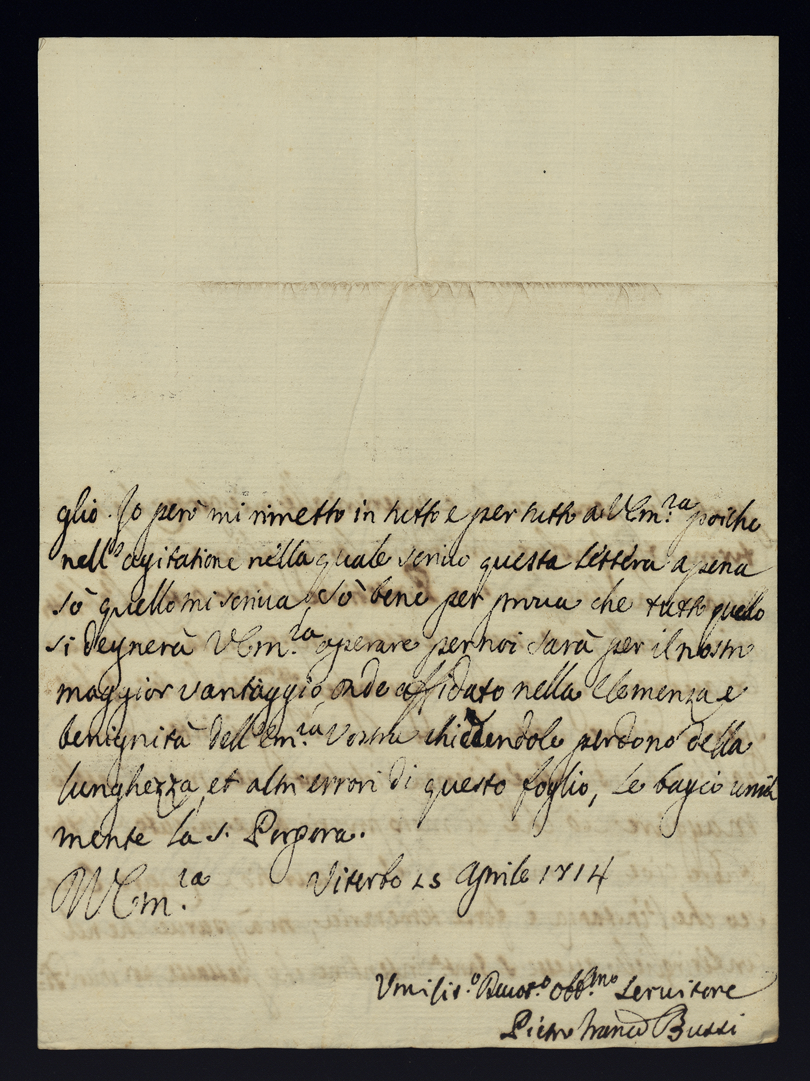 glio. Io però mi rimetto in tutto e per tutto a V Em.za poiche
nell'agitatione nella quale scrivo questa lettera apena
sò quello mi scriva, sò bene per prova che tutto quello
si degnerà V Em.za operare per noi sarà per il nostro
maggior vantaggio onde affidato nella clemenza e
benignità dell'Em.za Vostra chiedendole perdono della
lunghezza, et altri errori di questo foglio, le bagio umil
mente la S. Porpora.
V Em.za Viterbo 25 Aprile 1714
Umilis.o Devot.o Obb.mo Servitore
Pietro Franco Bussi